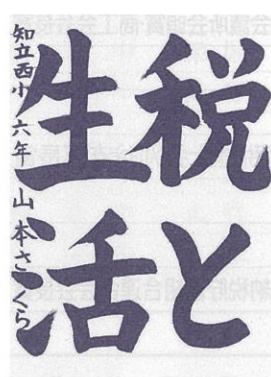 税と
生活
知立西小 六年 山本さくら